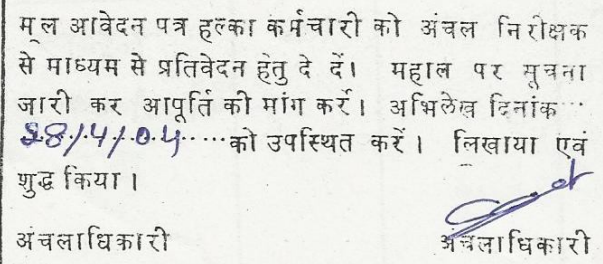 मूल आवेदन पत्र हल्का कर्मचारी को अंचल निरीक्षक
से माध्यम से प्रतिवेदन हेतु दे दें। महाल पर सूचना
जारी कर आपूर्ति की मांग करें। अभिलेख दिनांक...
28/4/04.....को उपस्थित करें। लिखाया एवं
शुद्ध किया।
अंचलाधिकारी अंचलाधिकारी